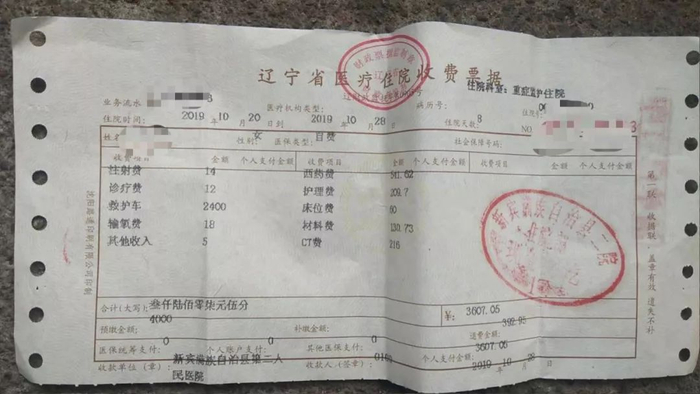 辽宁省医疗住院收费票据
住院科室：重症监护住院
业务流水
医疗机构类型：
病历号：
住院号：
住院时间：2019 10 20 日到 2019 10 28 日
住院天数：8
姓名
性别：女
医保类型：自费
社会保障号码：
收费项目 金额 个人支付金额 收费项目 金额 个人支付金额 收费项目 金额 个人支付金额
注射费 14 西药费 541.62
诊疗费 12 护理费 209.7
救护车 2400 床位费 60
输氧费 18 材料费 130.73
其他收入 5 CT费 216
合计(大写)：叁仟陆佰零柒元伍分 ￥：3607.05
预缴金额：4000 补缴金额： 退费金额：392.95
医保统筹支付：0 个人账户支付：0 其他医保支付：0 个人支付金额：3607.05
收款单位（章）：新宾满族自治县第二人民医院 收款人（签章）： 2019 10 28 日
第一联：收据联，盖章有效 遗失不补